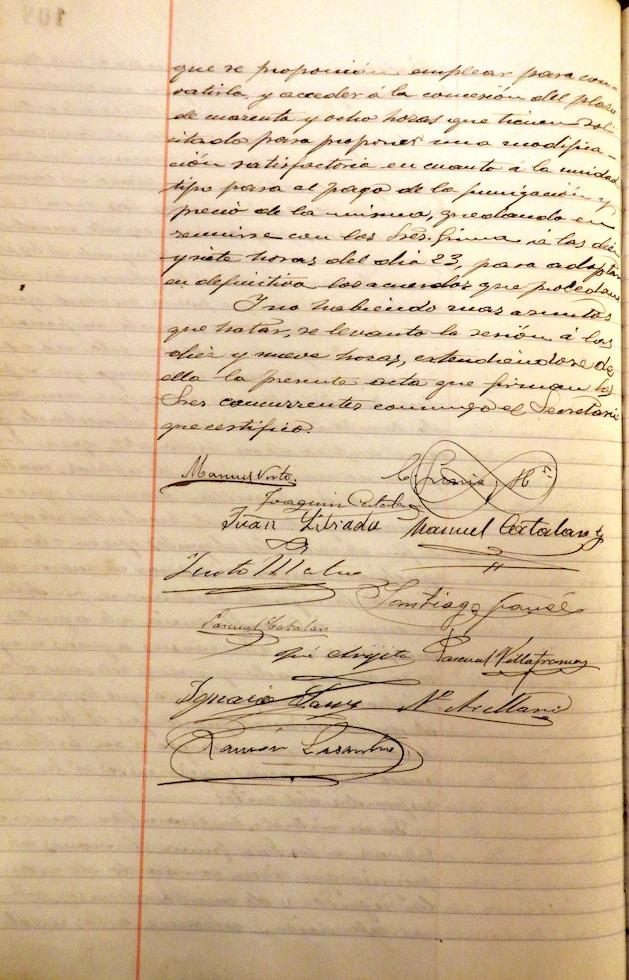 que se proponian emplear para com-
batirla y acceder á la concesión del plazo
de cuarenta y ocho horas que tienen soli-
citado para proponer una modifica-
ción satisfactoria en cuanto á la unidad
tipo para el pago de la fumigación y
precio de la misma, quedando en
reunirse con los Sres. Gimia á las diez
y siete horas del dia 23, para adoptar
en definitiva los acuerdos que procedan.
Y no habiendo mas asuntos
que tratar, se levantó la sesión á las
diez y nueve horas, extendiendose de
ella la presente acta que firman los
Sres concurrentes conmigo el Secretario
que certifico.
Manuel
Joaquin Catalan
Juan Manuel Catalan
Justo
Santiago
Pascual Catalan
Pascual Villafranca
Ignacio Sanz N. Arellano
Ramón Lisandro